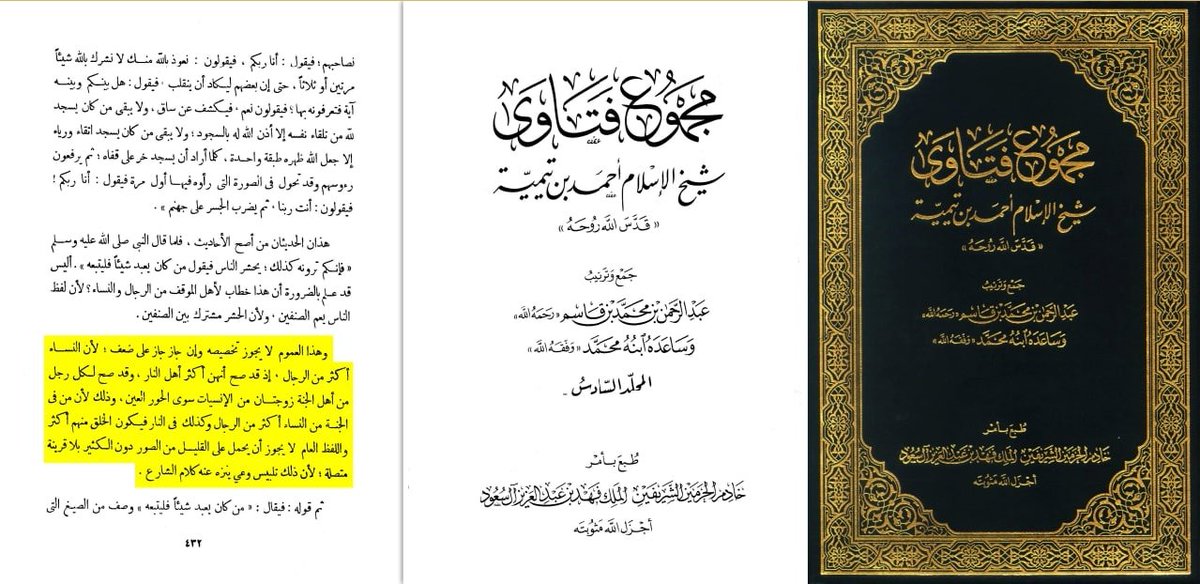 مجموع فتاوى
شيخ الإسلام أحمد بن تيمية
« قدس الله روحه »
جمع وترتيب
عبد الرحمن بن محمد بن قاسم «رحمه الله»
وساعده ابنه محمد «وفقه الله»
طبع بأمر
خادم الحرمين الشريفين الملك فهد بن عبد العزيز آل سعود
أجزل الله مثوبته
مجموع فتاوى
شيخ الإسلام أحمد بن تيمية
« قَدَّسَ اللَّه رُوحَهُ »
جَمْع وَتَرتيبُ
عبد الرحمن بن محمد بن قاسم «رحمه الله»
وساعده ابنه محمد «وفقه الله»
المجلد السادس
طبع بأمر
خادم الحرمين الشريفين الملك فهد بن عبد العزيز آل سعود
أجزل الله مثوبته
نصاحبهم ؛ فيقول : أنا ربكم ، فيقولون : نعوذ بالله منك لا نشرك بالله شيئاً
مرتين أو ثلاثاً ، حتى إن بعضهم ليكاد أن ينقلب ، فيقول : هل بينكم وبينه
آية فتعرفونه بها ؛ فيقولون نعم ، فيكشف عن ساق ، ولا يبقى من كان يسجد
لله من تلقاء نفسه إلا أذن الله له بالسجود ؛ ولا يبقى من كان يسجد اتقاء ورياء
إلا جعل الله ظهره طبقة واحدة ، كلما أراد أن يسجد خر على قفاه ؛ ثم يرفعون
رءوسهم وقد تحول فى الصورة التى رأوه فيها أول مرة فيقول : أنا ربكم !
فيقولون : أنت ربنا ، ثم يضرب الجسر على جهنم » .
هذان الحديثان من أصح الأحاديث ، فلما قال النبي صلى الله عليه وسلم
« فإنكم ترونه كذلك ؛ يحشر الناس فيقول من كان يعبد شيئاً فليتبعه » . أليس
قد علم بالضرورة أن هذا خطاب لأهل الموقف من الرجال والنساء ؟ لأن لفظ
الناس يعم الصنفين ، ولأن الحشر مشترك بين الصنفين .
وهذا العموم لا يجوز تخصيصه وإن جاز جاز على ضعف ؛ لأن النساء
أكثر من الرجال ، إذ قد صح أنهن أكثر أهل النار ، وقد صح لكل رجل
من أهل الجنة زوجتان من الإنسيات سوى الحور العين ، وذلك لأن من فى
الجنة من النساء أكثر من الرجال وكذلك فى النار فيكون الخلق منهم أكثر
واللفظ العام لا يجوز أن يحمل على القليل من الصور دون الكثير بلا قرينة
متصلة ؛ لأن ذلك تلبيس وعي ينزه عنه كلام الشارع .
ثم قوله : فيقال : « من كان يعبد شيئاً فليتبعه » وصف من الصيغ التى
٤٣٢